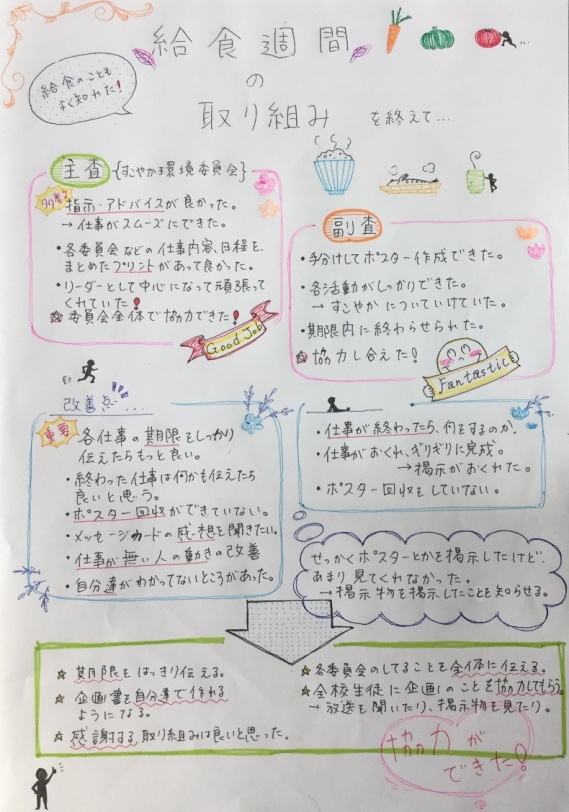 給食週間
の
取り組み を終えて…
給食のことも
よく知れた!
主査 {すこやか環境委員会}
多数
指示・アドバイスが良かった。
→仕事がスムーズにできた。
・各委員会などの仕事内容、日程を、
まとめたプリントがあって良かった。
・リーダーとして中心になって頑張って
くれていた!
☆委員会全体で協力できた!
Good Job
副査
・手分けしてポスター作成できた。
・各活動がしっかりできた。
→すこやかについていけていた。
・期限内に終わらせられた。
☆協力し合えた!
Fantastic
改善点…
重要
各仕事の期限をしっかり
伝えたらもっと良い。
・終わった仕事は何かも伝えたら
良いと思う。
・ポスター回収ができていない。
・メッセージカードの感想を聞きたい。
・仕事が無い人の動きの改善
・自分達がわかってないところがあった。
・仕事が終わったら、何をするのか。
・仕事がおくれ、ギリギリに完成。
→掲示がおくれた。
・ポスター回収をしていない。
せっかくポスターとかを掲示したけど、
あまり見てくれなかった。
→掲示物を掲示したことを知らせる。
☆期限をはっきり伝える。
☆企画書を自分達で作れる
ようになる。
☆感謝する取り組みは良いと思った。
☆各委員会のしてることを全体に伝える。
☆全校生徒に企画のことを協力してもらう。
→放送を聞いたり、掲示物を見たり。
協力が
できた!